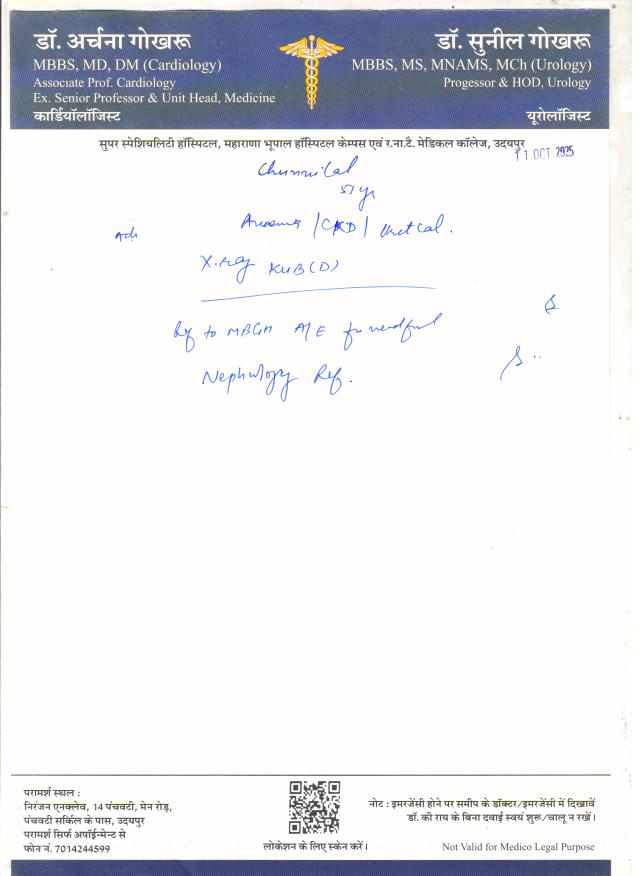 डॉ. अर्चना गोखरू
MBBS, MD, DM (Cardiology)
Associate Prof. Cardiology
Ex. Senior Professor & Unit Head, Medicine
कार्डियॉलॉजिस्ट
डॉ. सुनील गोखरू
MBBS, MS, MNAMS, MCh (Urology)
Progessor & HOD, Urology
यूरोलॉजिस्ट
सुपर स्पेशियलिटी हॉस्पिटल, महाराणा भूपाल हॉस्पिटल केम्पस एवं र.ना.टै. मेडिकल कॉलेज, उदयपुर
11 OCT 2025
Chunnilal
Adv
/CKD/
X-ray KUB(D)
Ref to MBGH A/E for needful
Nephrology Ref.
परामर्श स्थल :
निरंजन एनक्लेव, 14 पंचवटी, मेन रोड़,
पंचवटी सर्किल के पास, उदयपुर
परामर्श सिर्फ अपॉईन्मेन्ट से
फोन नं. 7014244599
लोकेशन के लिए स्केन करें।
नोट : इमरजेंसी होने पर समीप के डॉक्टर/इमरजेंसी में दिखावें
डॉ. की राय के बिना दवाई स्वयं शुरू/चालू न रखें।
Not Valid for Medico Legal Purpose